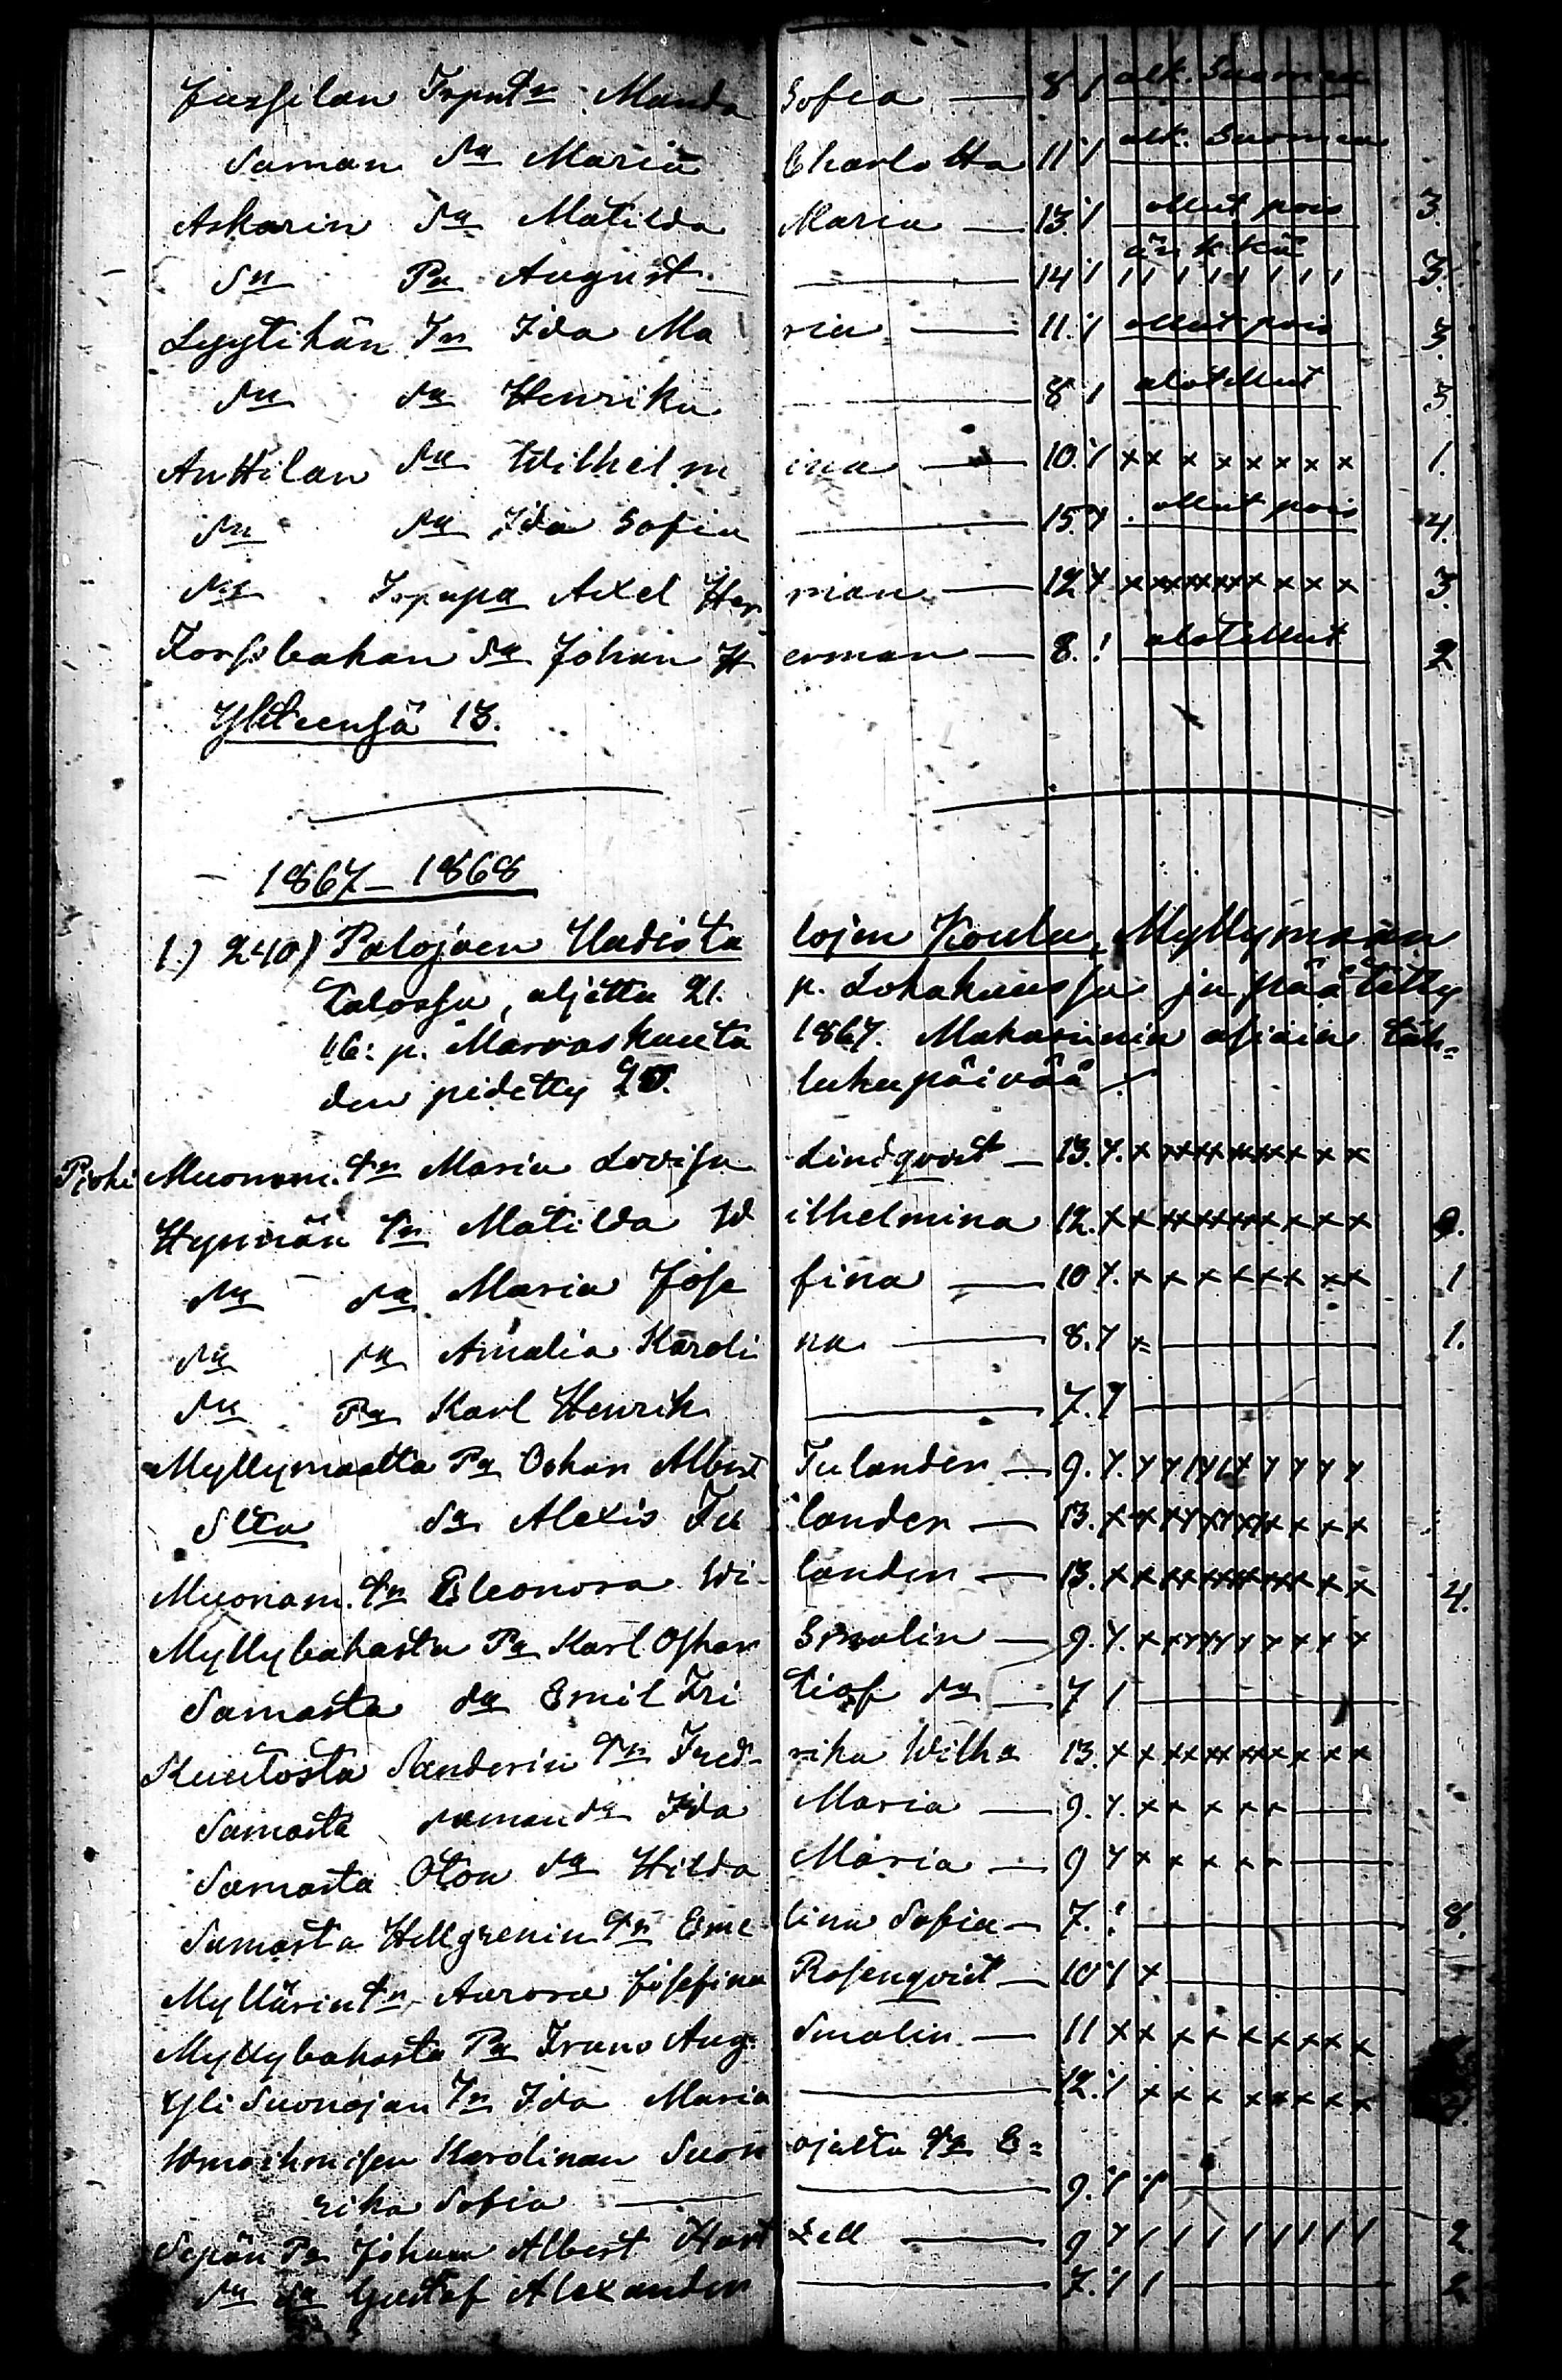 Jussilan Irpntn Manda Sofia — 8 / alk. Suomea
Saman Sa Maria Charlotta 11 ·/ alk. Suomea
Askarin Sa Matilda Maria — 13 ·/ ollut pois 3.
Sn Pa August — 14 / änkkä / / / / / / / / 3.
Lyytihän Tn Ida Maria — 11. ·/ ollut pois 3.
Sn Sa Henrika — 8 / alotellut 3.
Anttilan Sa Wilhelmina — 10. ·/ x x x x x x x x 1.
Sn Sa Ida Sofia — 15 ollut pois 4.
Sn Axel Herman — 12 x x x x x x x x x x x 3
Forssbakan Sa Johan Herman — 8. ! alotellut 2
Yhteensä 13.
1867 – 1868
1.) 240) Palojoen Uudistalojen Koulu, Myllymaan
talossa, aljettu 21. p. Lokakuussa ja päätetty
16: p. Marraskuuta 1867. Makasiinin asiain täh=
den pidetty 20. lukupäivää
Muonam. Tn Maria Lovisa Lindqvist — 13. x x x x x x x x x x
Hynnän Tn Matilda Wilhelmina 12. x x x x x x x x x x
Sn Sa Maria Josefina — 10 x x x x x x x x 1
Sn Sa Amalia Karolina — 8. x — 1.
Sn Pa Karl Henrik — 7. ?
Myllymaalta Pa Oskar Albert Tulander — 9.
Slta Sa Alexis Tulander — 13. x x x x x x x x x x
Muonam. Tn Eleonora Wilander — 13. x x x x x x x x x x 4.
Myllybakasta Pa Karl Oskar Smolin — 9. x x x x x x x x x
Samasta Sa Emil Fritiof Sa — 7 /
Kuutosta Sanderin Tn Fredrika Wilh:a 13. x x x x x x x x x x
Samasta saman Sa Ida Maria — 9. x x x x x —
Samasta Oton Sa Hilda Maria — 9 x x x x x —
Samasta Hellgrenin Tn Emelina Sofia — 7. ! — 8.
Myllärin tn Aurora Josefina Rosenqvist — 10 / x —
Myllybakasta Pa Frans Aug. Smolin — 11 x x x x x x x x x
Yli Suonojan Tn Ida Maria — 12. / x x x x x x x x
Karolinan Suonojalta Ta E=
rika Sofia — 9. ·/· ·/·
Sepän Pa Johan Albert Hartzell — 9 / / / / / / / / 2.
Sn Sa Gustaf Alexander — 7. ·/ / — 2